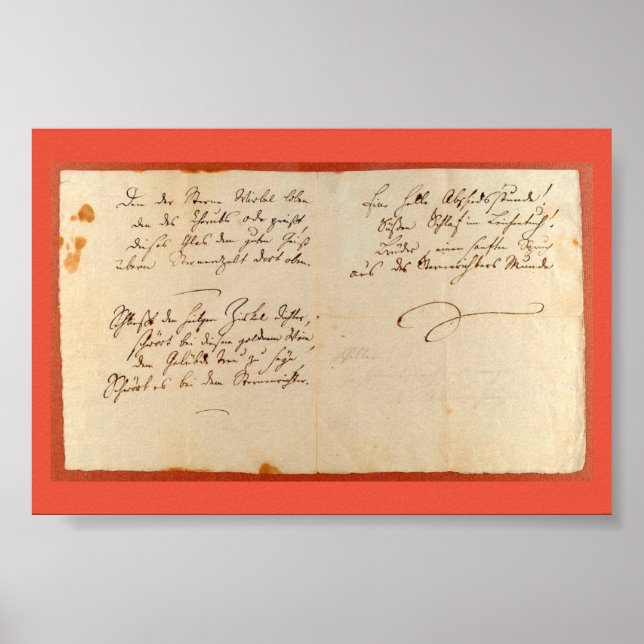 Den der Sterne Wirbel loben
den des Seraphs Hymne preißt,
Dieses Glas dem guten Geist
überm Sternenzelt dort oben.
Schließt den heilgen Zirkel dichter,
schwört bei diesem goldnen Wein
dem Gelübde treu zu seyn,
Schwört es bei dem Sternenrichter.
Eine heitre Abschiedsstunde!
Süßen Schlaf im Leichentuch!
Brüder einen sanften Spruch
aus des Todtenrichters Munde